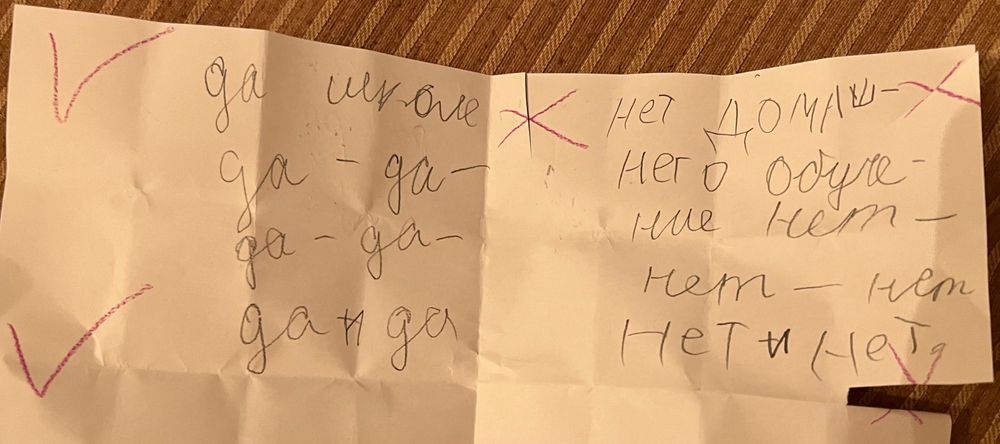 да школе
да - да-
да - да-
да и да
нет домаш-
него обуче-
ние нет-
нет - нет
Нет и нет,